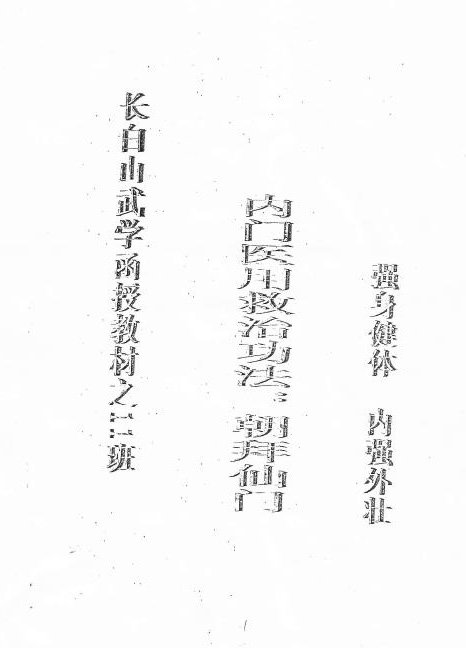 强身健体 内强外壮
内门医用救治功法：朝拜仙门
长白山武学函授教材之班